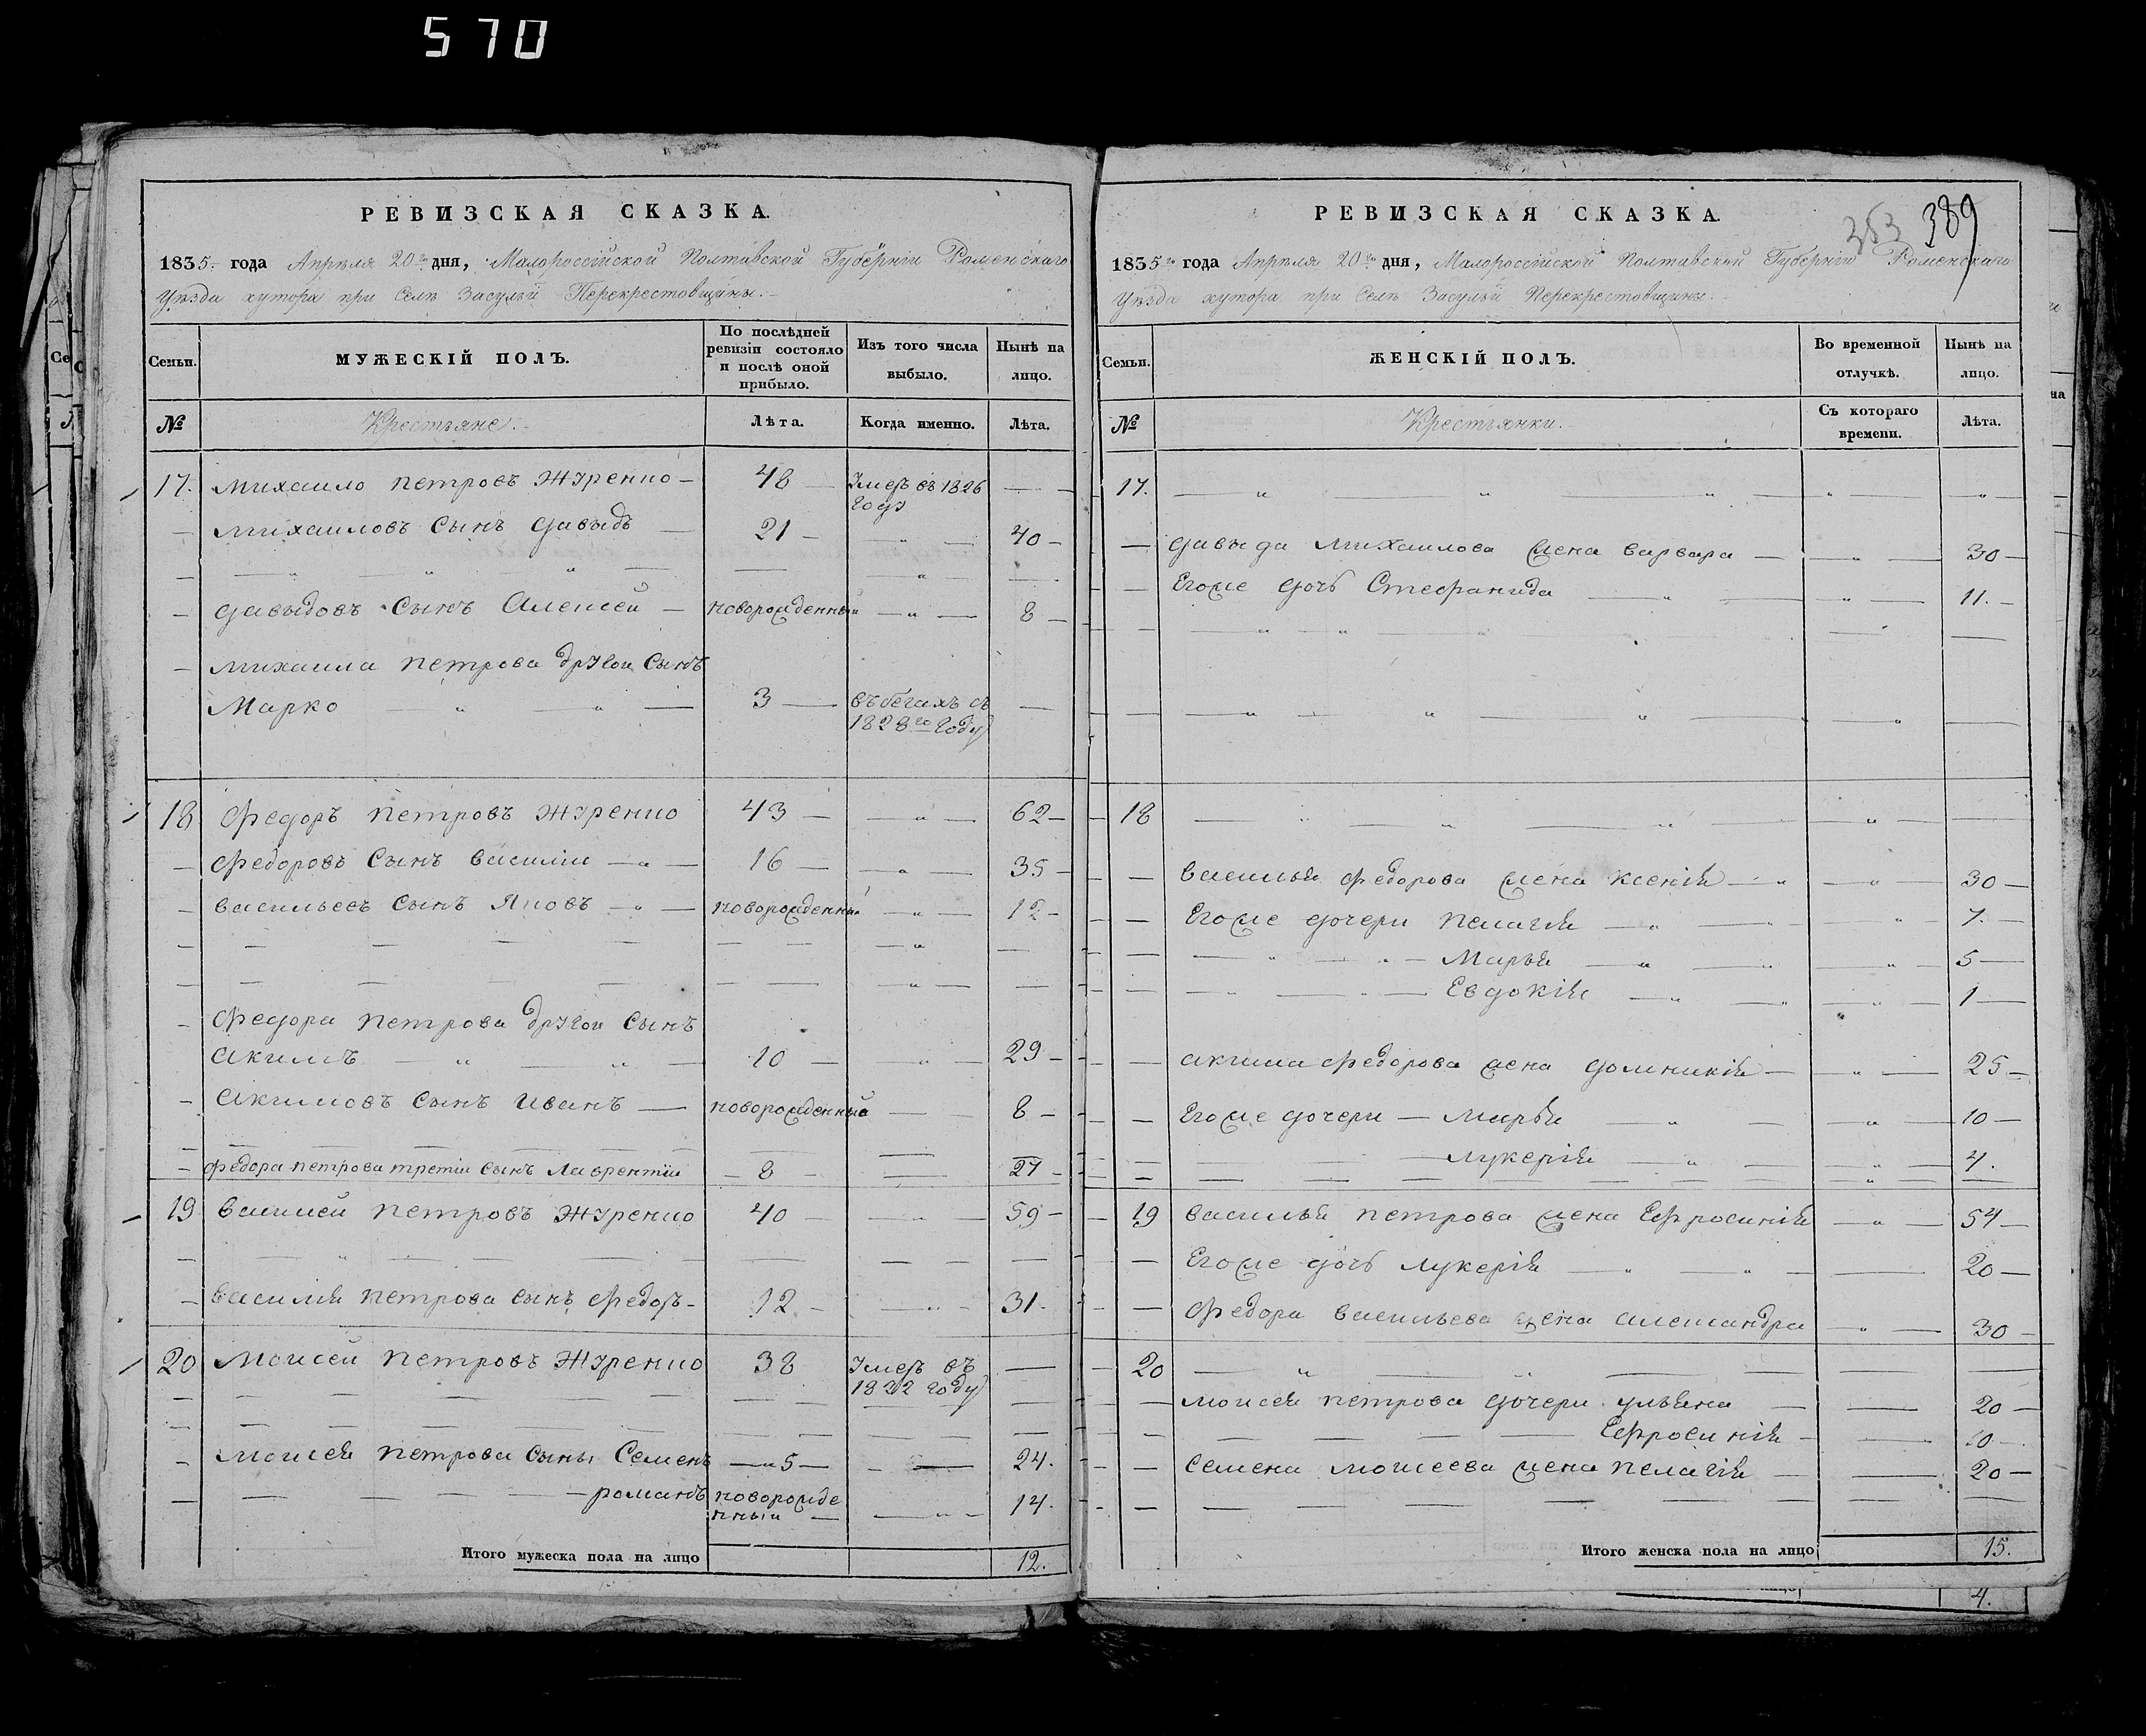 570
РЕВИЗСКАЯ СКАЗКА.
1835 года Апрѣля 20го дня, Малороссійской Полтавской Губерніи Роменскаго
Уѣзда хутора при Селѣ Засульи Перекрестовщины.
Семьи.
МУЖЕСКІЙ ПОЛЪ.
По послѣдней ревизіи состояло и послѣ оной прибыло.
Изъ того числа выбыло.
Нынѣ на лицо.
№ Крестьяне. Лѣта. Когда именно. Лѣта.
17. Михайло Петровъ Журенко 48 Умеръ въ 1826 году
Михайловъ Сынъ Давыдъ 21 40
Давыдовъ Сынъ Алексей новорожденный 8
Михайла Петрова другой Сынъ
Марко 3 въ бегахъ съ 1828го году
18 Федоръ Петровъ Журенко 43 62
Федоровъ Сынъ Василій 16 35
Васильевъ Сынъ Яковъ новорожденный 12
Федора Петрова другой Сынъ
Акимъ 10 29
Акимовъ Сынъ Иванъ новорожденный 8
Федора Петрова третій Сынъ Лаврентій 8 27
19 Василей Петровъ Журенко 40 59
Василія Петрова Сынъ Федоръ 12 31.
20 Моисей Петровъ Журенко 38 Умеръ въ 1822 году
Моисея Петрова Сыны Семенъ 5 24.
Романъ новорожденный 14.
Итого мужеска пола на лицо 12.
353 389
РЕВИЗСКАЯ СКАЗКА.
1835го года Апрѣля 20го дня, Малороссійской Полтавской Губерніи Роменскаго
Уѣзда хутора при Селѣ Засульи Перекрестовщины.
Семьи.
ЖЕНСКІЙ ПОЛЪ.
Во временной отлучкѣ.
Нынѣ на лицо.
№ Крестьянки. Съ котораго времени. Лѣта.
17.
Давыда Михайлова жена Варвара 30
Егоже дочь Стефанида 11.
18
Василья Федорова жена Ксенія 30
Егоже дочери Пелагія 7.
Марья 5
Евдокія 1
Акима Федорова жена Домникія 25
Егоже дочери Марья 10
Лукерія 4.
19 Василья Петрова жена Ефросинія 54
Егоже дочь Лукерія 20
Федора Васильева жена Александра 30
20
Моисея Петрова дочери Ульяна 20
Ефросинія 10
Семена Моисеева жена Пелагія 20
Итого женска пола на лицо 15.
4.